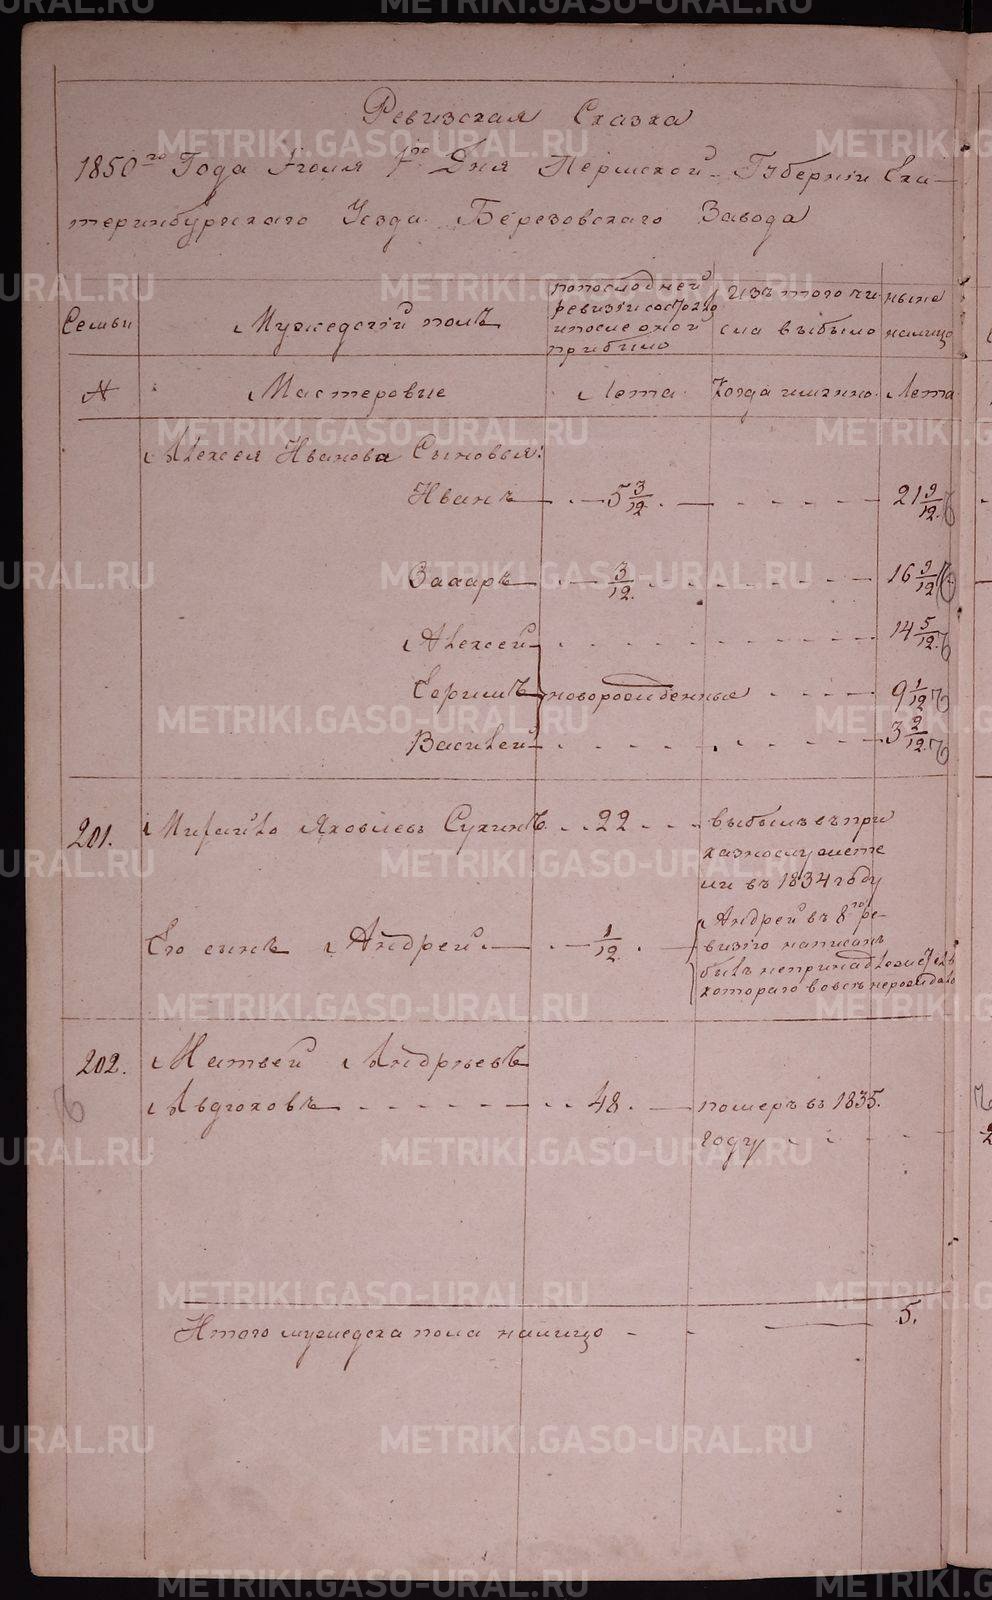 Ревизская Сказка
1850го Года Iюля 7го Дня Пермской Губернiи Ека-
теринбургскаго Уезда Березовскаго Завода
Семьи
Мужедский полъ
попоследней ревизiи состояло ипосле оной прибыло
Изъ того чи сла выбыло
ныне налицо
№
Мастеровые
Лета
Когда имянно
Лета
Алексея Иванова Сыновья:
Иванъ 5 3/12. 21 9/12.
Захаръ 3/12. 16 9/12
Алексей 14 5/12.
Ефимъ новорожденные 9 1/12
Василей 3 2/12.
201. Михайло Яковлевъ Сухинъ 22 выбылъ въ при
казнослужите
ли въ 1834 году
Его сынъ Андрей 1/12. Андрей въ 8го ре-
визiю написанъ
былъ непринадлежис
котораго вовсе нерождало
202. Матвей Андреевъ
Авдюковъ 48. померъ въ 1835.
году
Итого мужедска пола налицо 5.
METRIKI.GASO-URAL.RU